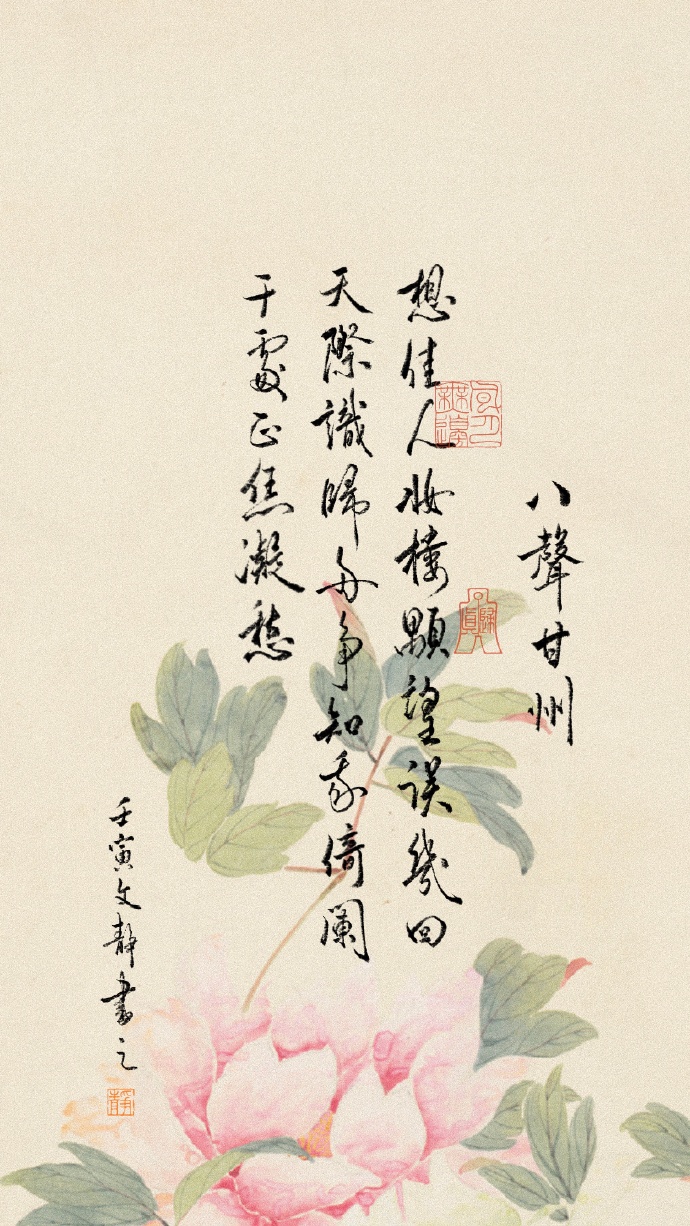 八聲甘州
想佳人妝樓顒望誤幾回
天際識歸舟爭知我倚闌
干處正焦凝愁
壬寅文靜書之
靜